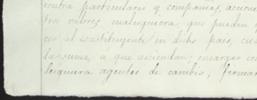 contra particulares y compañias, accione
tra valores cualesquiera, que pueden
en el constituyente en dicho pais, cua
la suma, a que asciendan; encargar co
lesquiera agentes de cambio, firman